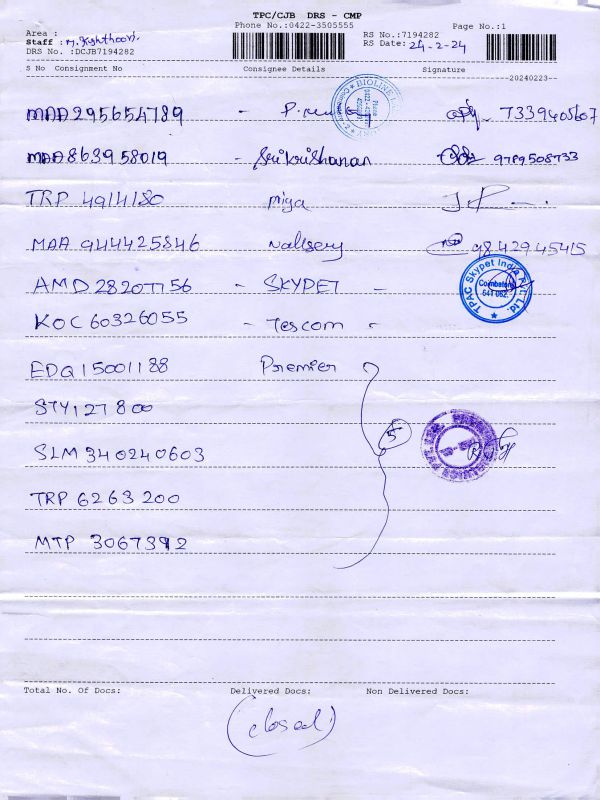 TPC/CJB DRS - CMP
Phone No.:0422-3505555 Page No.:1
Area : RS No.:7194282
Staff : RS Date: 24-2-24
DRS No. :DCJB7194282
S No Consignment No Consignee Details Signature
20240223
MAA295654789 - 7339405607
MAA863958019 - Srikrishanan 9789508733
TRP 4914180 Priya
MAA 944425846 9842945415
AMD 28207756 - SKYPET -
TPAC Skypet India Pvt. Ltd.
Coimbatore
641 062.
KOC 60326055 - Tescom -
EDQ15001188 Premier
STY127800
5
SLM 340240603
TRP 6263200
MTP 3067392
Total No. Of Docs: Delivered Docs: Non Delivered Docs:
(closed)